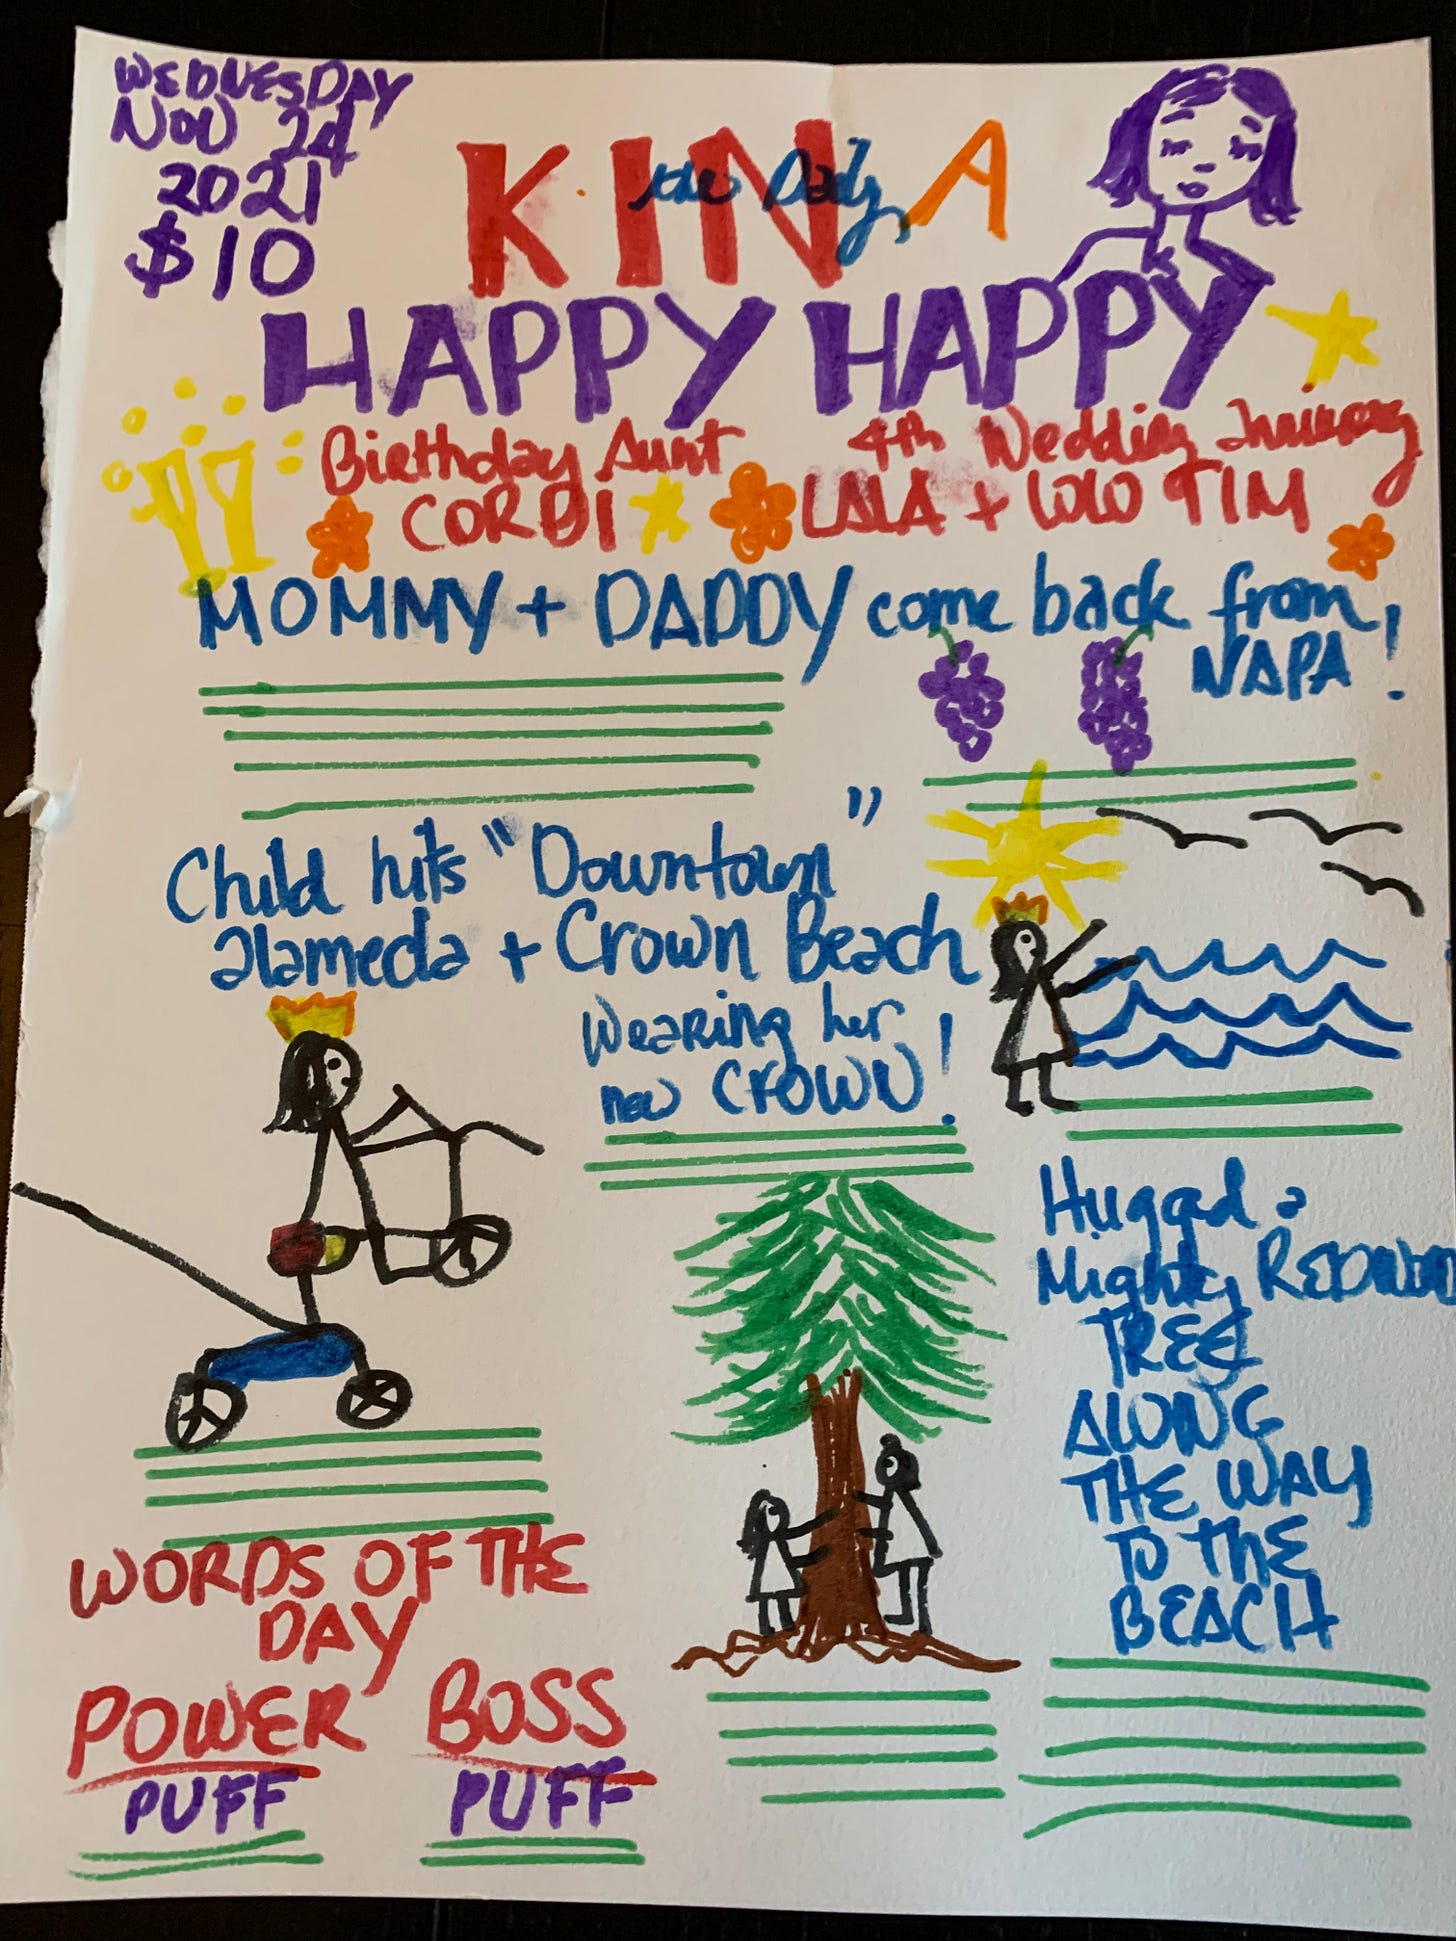 WEDNESDAY
NOV 24
2021
$10
the Daily
KINA
HAPPY HAPPY
Birthday Aunt
CORDI
4th Wedding
LALA + LOLO TIM
MOMMY + DADDY come back from
NAPA!
Child hits "Downtown"
alameda + Crown Beach
Wearing her
new CROWN!
Hugged a
Mighty REDWOOD
TREE
ALONG
THE WAY
TO THE
BEACH
WORDS OF THE
DAY
POWER BOSS
PUFF PUFF